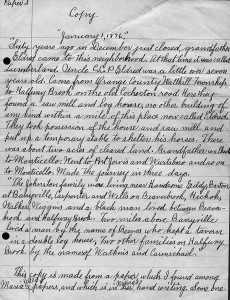 Paper 2
Copy.
"January 1, 1876.
"Sixty years ago in December just closed, grandfather
Eldred came to this neighborhood. At that time it was called
Lumberland. Uncle C.C.P. Eldred was a little over seven
years old. Came from Orange County, Wallkill township
to Halfway Brook, on the old Cochecton road. Here they
found a saw mill and log house; no other building of
any kind within a mile of this place now called Eldred.
They took possession of the house and saw mill and
put up a temporary stable to shelter his horses. There
was about two acres of cleared land. Grandfather went
to Monticello. Went to Port Jervis and Wurtsboro and so on
to Monticello. Made the journey in three days.
The Johnston family was living near Handsome Eddy, Barton
at Barryville, Carpenter and Wells on Beaverbrook, Hickok,
Walker, Wiggins and a black man, lived between Beaver
brook and Halfway Brook. Two miles above Barryville
lived a man by the name of Beyea who kept a tavern
in a double log house. Two other families on Halfway
Brook by the name of Watkins and Carmichael.
This copy is made from a paper which I found among
Maria's papers, and which is in his hand writing, done one